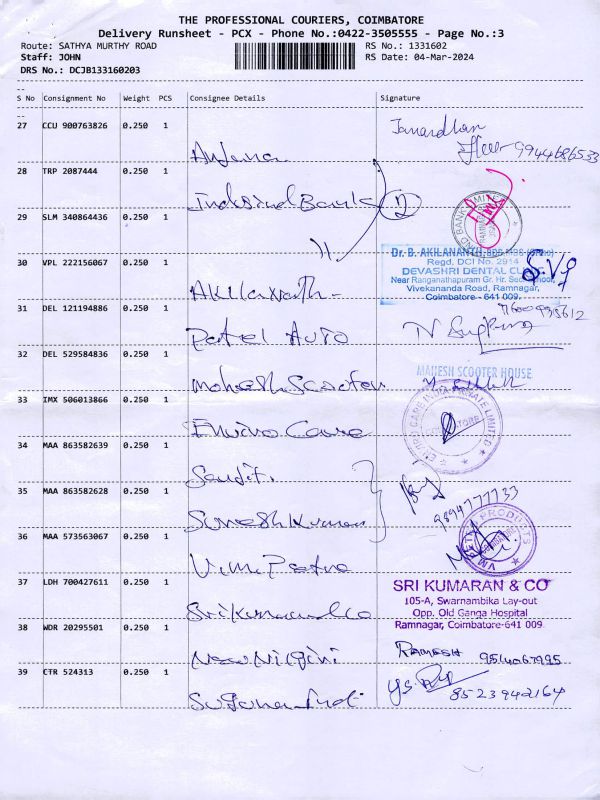 THE PROFESSIONAL COURIERS, COIMBATORE
Delivery Runsheet - PCX - Phone No.:0422-3505555 - Page No.:3
Route: SATHYA MURTHY ROAD
RS No.: 1331602
Staff: JOHN
RS Date: 04-Mar-2024
DRS No.: DCJB133160203
S No Consignment No Weight PCS Consignee Details Signature
27 CCU 900763826 0.250 1 Anjana Janardhan
9944686533
28 TRP 2087444 0.250 1 IndusInd Bank 2
29 SLM 340864436 0.250 1 "
30 VPL 222156067 0.250 1 Akilanath
Dr. B. AKILANANTH
Regd. DCI No. 2914
DEVASHRI DENTAL
Near Ranganathapuram Gr. Hr. Sec. School,
Vivekananda Road, Ramnagar,
Coimbatore - 641 009.
31 DEL 121194886 0.250 1 Patel Auto
32 DEL 529584836 0.250 1 Mahesh Scooter
MAHESH SCOOTER HOUSE
33 IMX 506013866 0.250 1 Enviro Care
ENVIRO CARE INDIA PRIVATE LIMITED
34 MAA 863582639 0.250 1
35 MAA 863582628 0.250 1 Suresh Kumar
9894777733
36 MAA 573563067 0.250 1 V.M. Petro
VM PETRO PRODUCTS
37 LDH 700427611 0.250 1 Sri Kumaran & Co
SRI KUMARAN & CO
105-A, Swarnambika Lay-out
Opp. Old Ganga Hospital
Ramnagar, Coimbatore-641 009
38 WDR 20295501 0.250 1 New Nilgiri RAMESH 9514067995
39 CTR 524313 0.250 1 8523942164